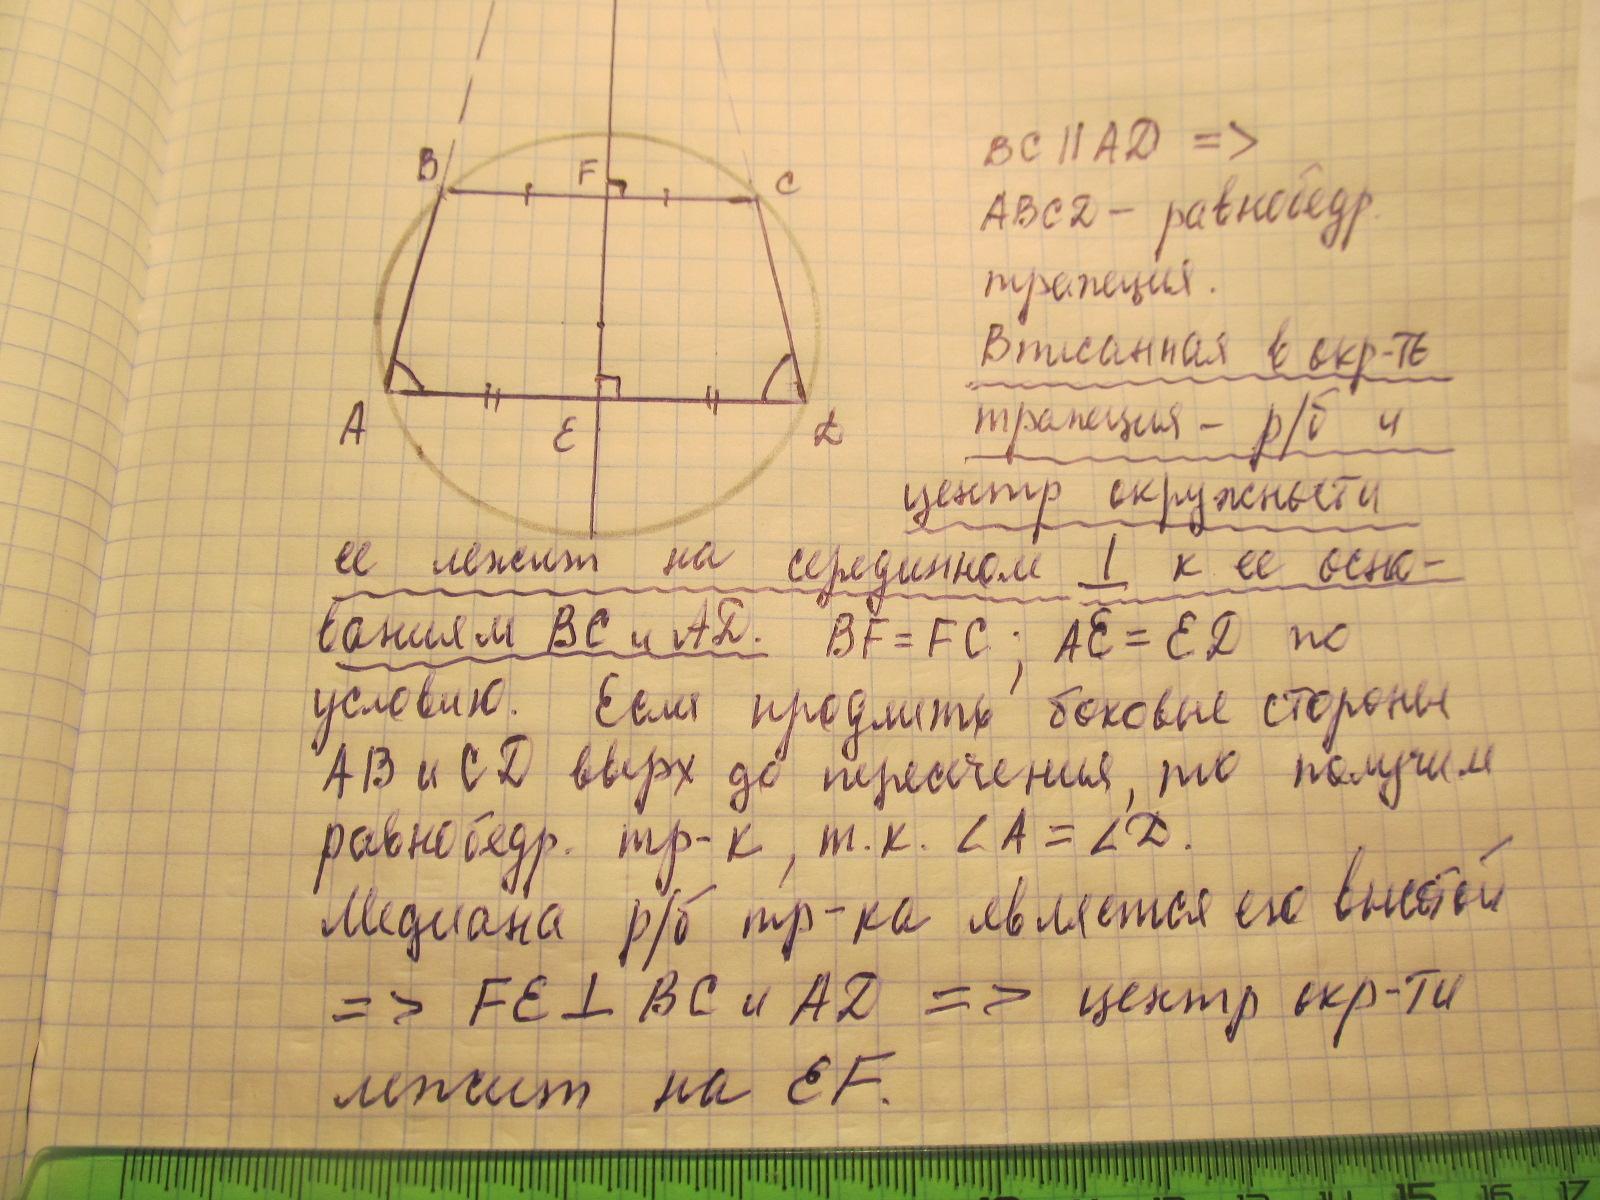 B
F
C
A
E
D
BC || AD =>
ABCD – равнобедр.
трапеция.
Вписанная в окр-ть
трапеция – р/б и
центр окружности
ее лежит на серединном ⊥ к ее осно-
ваниям BC и AD. BF = FC ; AE = ED по
условию. Если продлить боковые стороны
AB и CD вверх до пересечения, то получим
равнобедр. тр-к, т.к. ∠A = ∠D.
Медиана р/б тр-ка является его высотой
=> FE ⊥ BC и AD => центр окр-ти
лежит на EF.
12 13 14 15 16 17